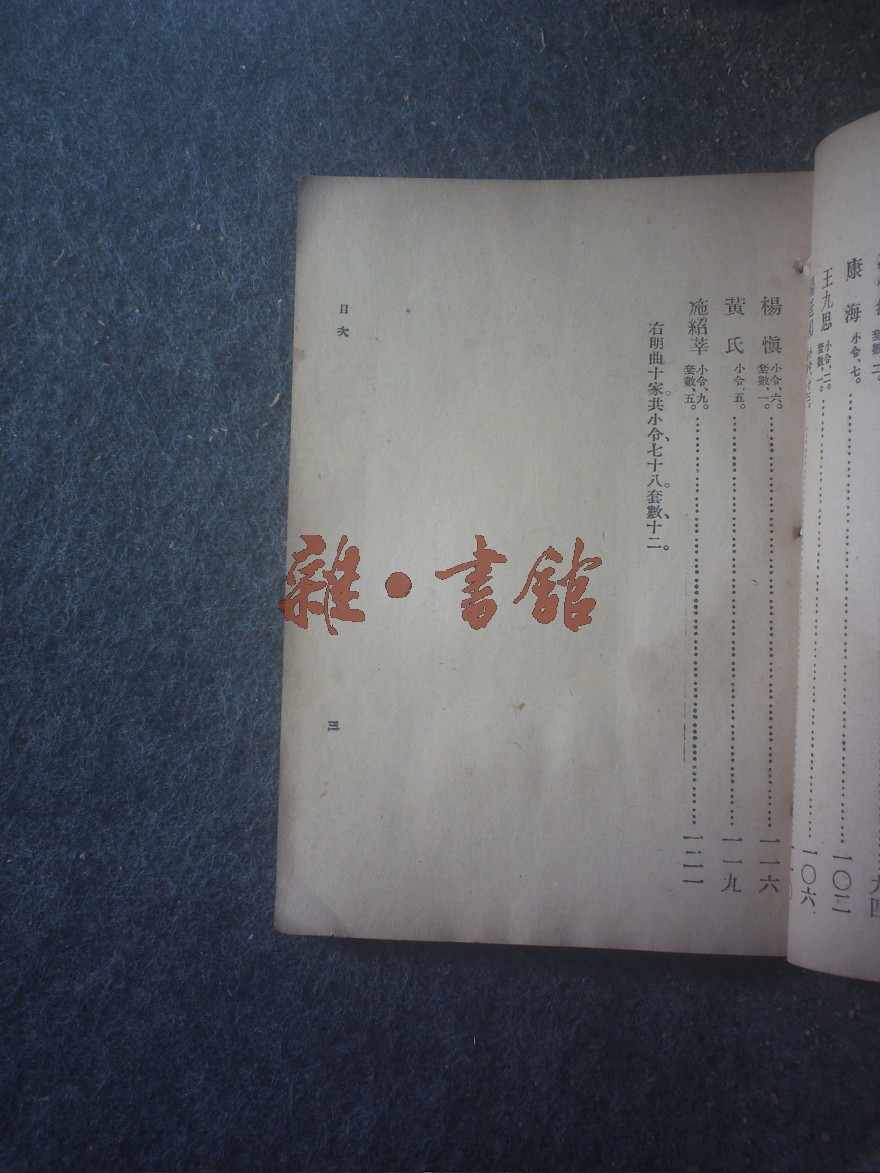 康海 小令、七。 一〇二
王九思 小令、二。套數、一。 一〇六
楊愼 小令、六。套數、一。 一一六
黃氏 小令、五。 一一九
施紹莘 小令、九。套數、五。 一二一
右明曲十家。共小令、七十八。套數、十二。
目次
三
雜·書館